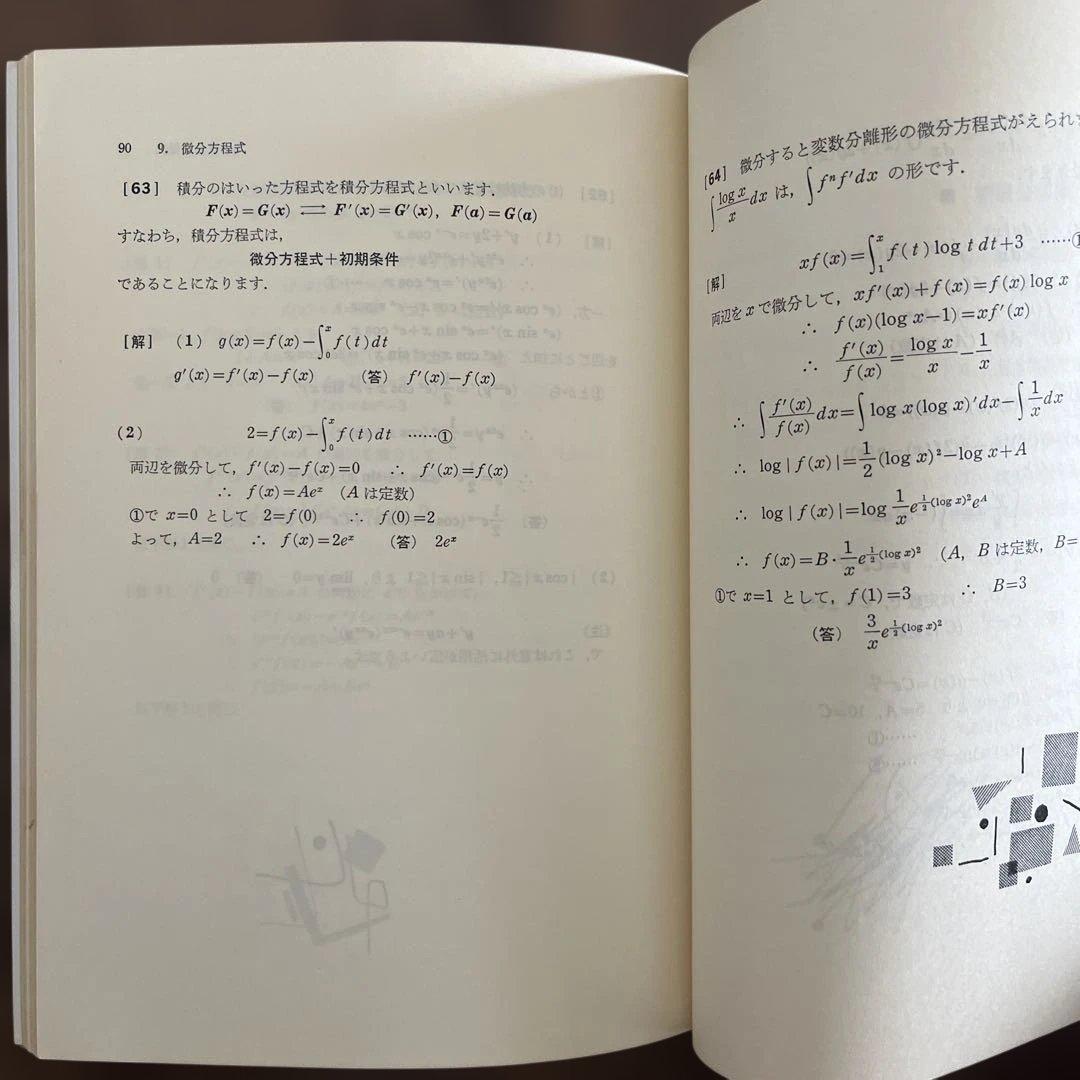 90 9. 微分方程式
[63] 積分のはいった方程式を積分方程式といいます.
F(x)=G(x) ⇌ F′(x)=G′(x), F(a)=G(a)
すなわち, 積分方程式は,
微分方程式+初期条件
であることになります.
[解] (1) g(x)=f(x)−∫₀ˣ f(t)dt
g′(x)=f′(x)−f(x) (答) f′(x)−f(x)
(2) 2=f(x)−∫₀ˣ f(t)dt ……①
両辺を微分して, f′(x)−f(x)=0 ∴ f′(x)=f(x)
∴ f(x)=Aeˣ (A は定数)
①で x=0 として 2=f(0) ∴ f(0)=2
よって, A=2 ∴ f(x)=2eˣ (答) 2eˣ
[64] 微分すると変数分離形の微分方程式がえられ
∫ log x/x dx は, ∫ fⁿf′dx の形です.
[解] xf(x)=∫₁ˣ f(t)log t dt+3 ……①
両辺を x で微分して, xf′(x)+f(x)=f(x)log x
∴ f(x)(log x−1)=xf′(x)
∴ f′(x)/f(x)=log x/x−1/x
∴ ∫ f′(x)/f(x) dx=∫ log x(log x)′dx−∫ 1/x dx
∴ log|f(x)|=1/2(log x)²−log x+A
∴ log|f(x)|=log 1/x e^{1/2(log x)²}e^A
∴ f(x)=B・1/x e^{1/2(log x)²} (A, B は定数, B=
①で x=1 として, f(1)=3 ∴ B=3
(答) 3/x e^{1/2(log x)²}